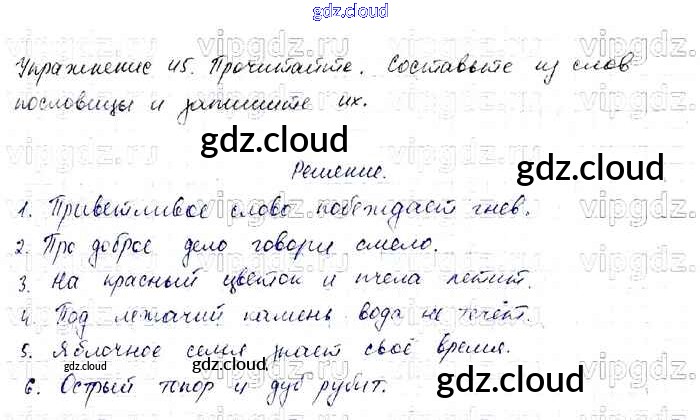 gdz.cloud
Упражнение 45. Прочитайте. Составьте из слов
пословицы и запишите их.
gdz.cloud
Решение.
gdz.cloud
1. Приветливое слово побеждает гнев.
2. Про доброе дело говори смело.
3. На красный цветок и пчела летит.
4. Под лежачий камень вода не течёт.
5. Яблочное семя знает своё время.
gdz.cloud gdz.cloud
6. Острый топор и дуб рубит.
gdz.cloud